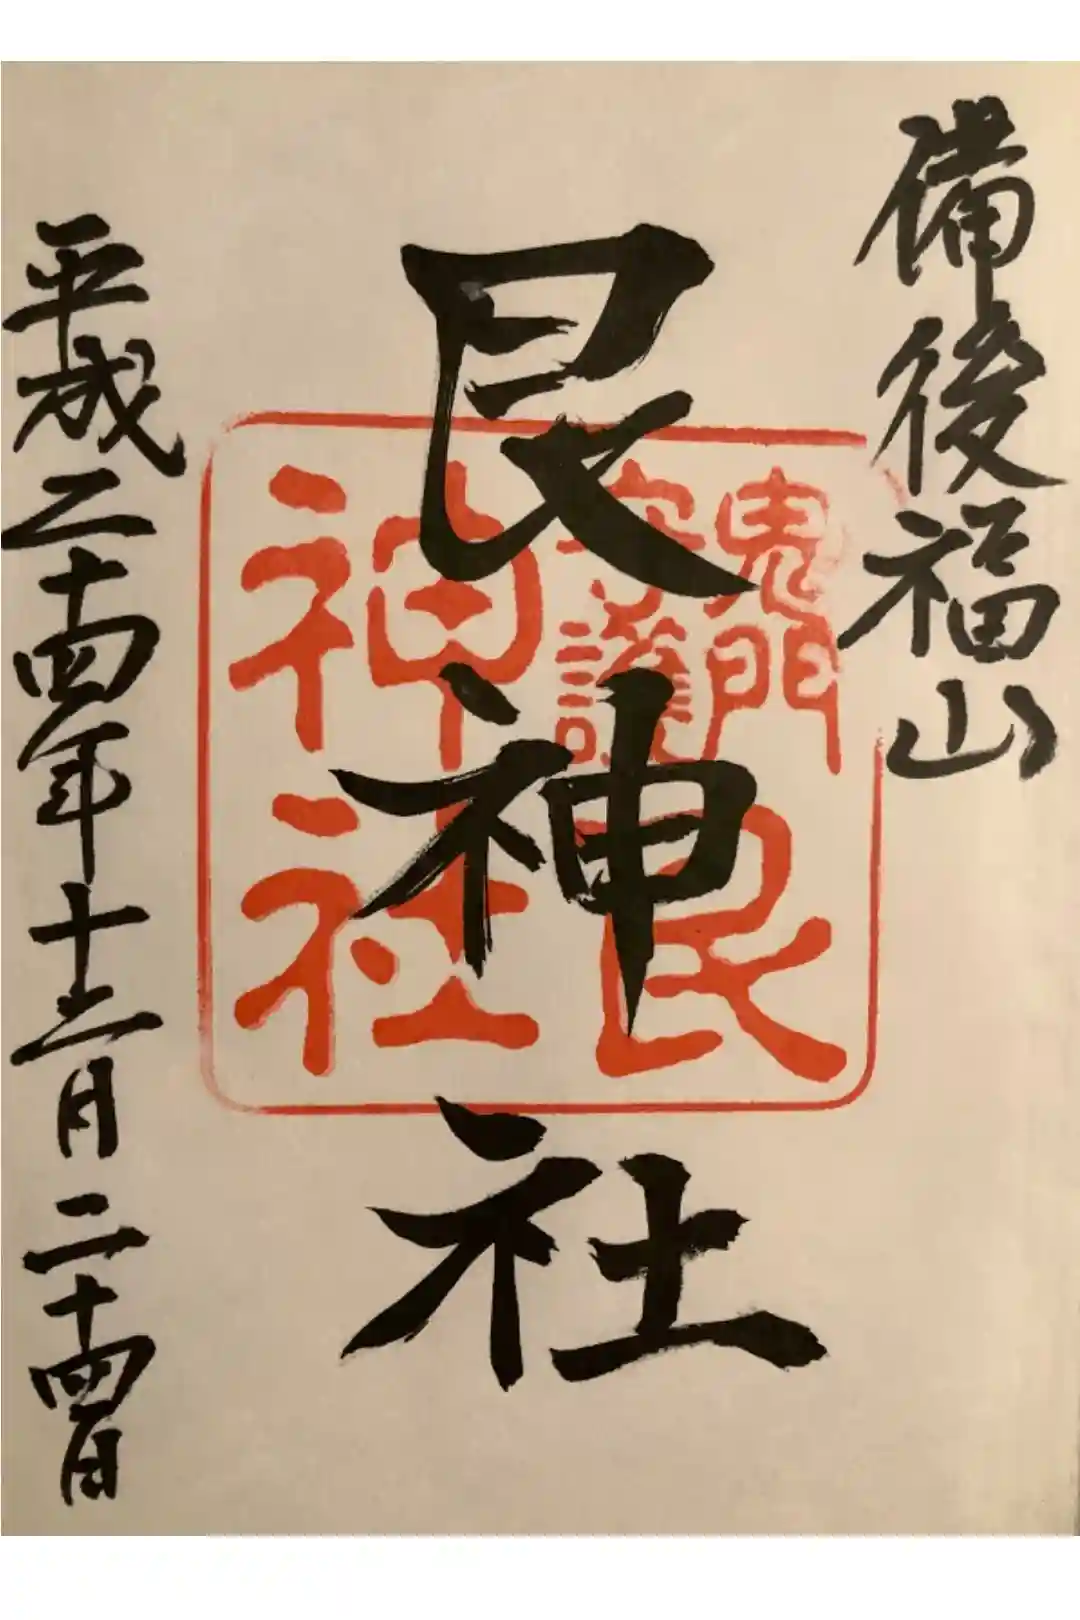 備後福山
艮神社
平成二十四年十二月二十四日
鬼門
守護
艮
神社